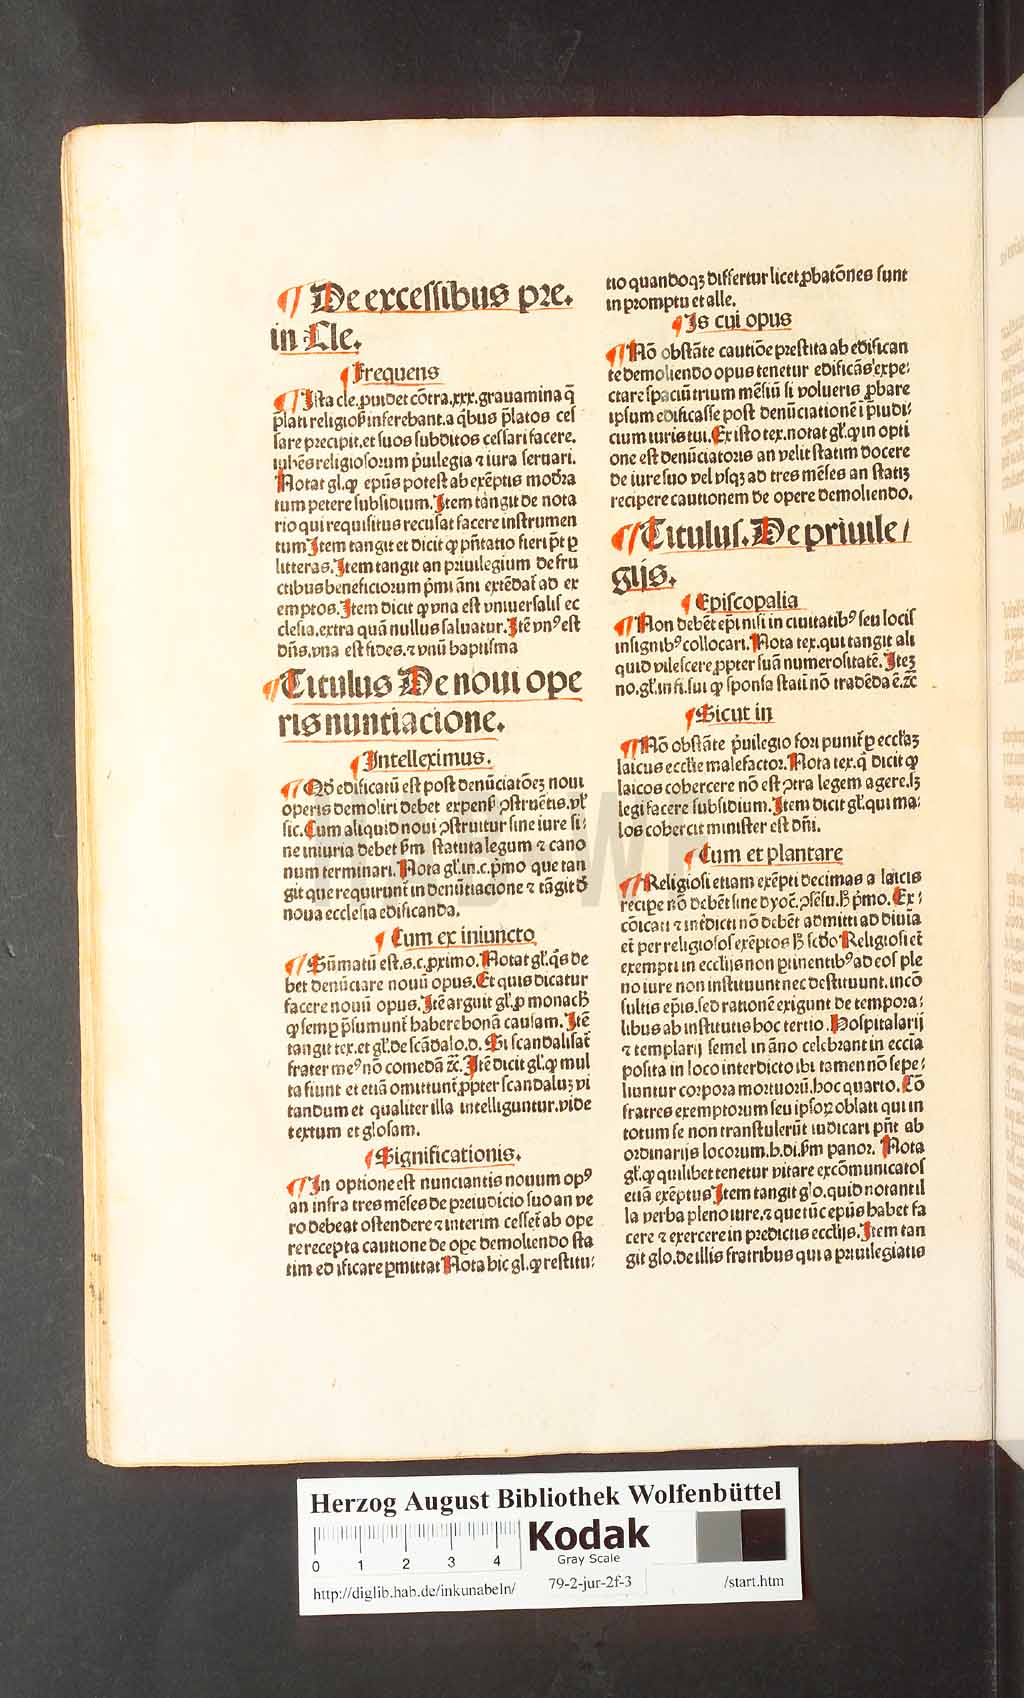 ¶ De excessibus pre.
in Cle.
¶ Frequens
¶ Ista cle. ꝓuidet cōtra .xxx. grauamina q̄
p̄lati religiosꝭ inferebant. a qͥbus p̄latos ces
sare precipit. et suos subditos cessari facere.
iubēs religiosorum pͥuilegia ⁊ iura seruari.
Notat gl. ꝙ epūs potest ab exēptis modͣra
tum petere subsidium. Item tangit de nota
rio qui requisitus recusat facere instrumen
tum Item tangit et dicit ꝙ pn̄tatio fieri pn̄t ꝑ
litteras. Item tangit an priuilegium de fru
ctibus beneficiorum pͥmi āni extēdat̄ ad ex
emptos. Item dicit ꝙ vna est vniuersalis ec
clesia. extra quā nullus saluatur. Itē vnꝰ est
dn̄s. vna est fides. ⁊ vnū baptisma
¶ Titulus De noui ope
ris nuntiacione.
¶ Intelleximus.
¶ Qd̄ edificatū est post denūciatōeꝫ noui
operis demoliri debet expensꝭ ꝯstruētis. vl̓
sic. Cum aliquid noui ꝯstruitur sine iure si⸗
ne iniuria debet ẜm statuta legum ⁊ cano
num terminari. Nota gl. in. c. pͥmo que tan
git que requirunt̄ in denūtiacione ⁊ tāgit d̓
noua ecclesia edificanda.
¶ Cum ex iniuncto
¶ Sūmatū est. s. c. ꝓximo. Notat gl. qͥs de
bet denūciare nouū opus. Et quis dicatur
facere nouū opus. Itē arguit gl. ꝓ monachꝭ
ꝙ semꝑ p̄sumunt̄ habere bonā causam. Itē
tangit tex. et gl. de scādalo. d. Si scandalisat̄
frater meꝰ nō comedā ⁊c̄. Itē dicit gl. ꝙ mul
ta fiunt et etiā omittunt̄ ꝓpter scandaluꝫ vi
tandum et qualiter illa intelliguntur. vide
textum et glosam.
¶ Significationis.
¶ In optione est nunciantis nouum opꝰ
an infra tres mēses de preiudicio suo an ve
ro debeat ostendere ⁊ interim cesset̄ ab ope
re recepta cautione de ope demoliendo sta
tim ed ificare ꝑmittat Nota hic gl. ꝙ restitu⸗
tio quandoqꝫ differtur licet ꝓbatōnes sunt
in promptu et alle.
¶ Is cui opus
¶ Nō obstāte cautiōe prestita ab edifican
te demoliendo opus tenetur edificās expe⸗
ctare spaciū trium mēsiū si volueris ꝓbare
ipsum edificasse post denūciationē ī p̄iudi⸗
cium iuris tui. Ex isto tex. notat gl. ꝙ in opti
one est denūciatoris an velit statim docere
de iure suo vel vsqꝫ ad tres mēses an statiꝫ
recipere cautionem de opere demoliendo.
¶ Titulus. De priuile/
gijs.
¶ Episcopalia
¶ Non debēt epī nisi in ciuitatibꝰ seu locis
insignibꝰ collocari. Nota tex. qui tangit ali
quid vilescere ꝓpter suā numerositatē. Iteꝫ
no. gl. in fi. sui ꝙ sponsa statū nō tradēda ē. ⁊c̄
¶ Sicut in
¶ Nō obstāte pͥuilegio fori punit̄ ꝑ eccl̓iaꝫ
laicus eccl̓ie malefactor. Nota tex. qͥ dicit ꝙ
laicos cohercere nō est ꝯtra legem agere. sꝫ
legi facere subsidium. Item dicit gl. qui ma⸗
los cohercit minister est dn̄i.
¶ Cum et plantare
¶ Religiosi etiam exēpti decimas a laicis
recipe nō debēt sine dyoc̄. ꝯsēsu. hꝭ pͥmo. Ex⸗
cōicati ⁊ int̓dicti nō debēt admitti ad diuīa
et̄ per religiosos exēptos hꝭ scd̓o Religiosi et̄
exempti in eccl̓ijs non ꝑtinentibꝰ ad eos ple
no iure non instituunt nec destituunt. incō
sultis ep̄is. sed rationē exigunt de tempora⸗
libus ab institutis hoc tertio. Hospitalarij
⁊ templarij semel in āno celebrant in eccīa
posita in loco interdicto ibi tamen nō sepe⸗
liuntur corpora mortuorū. hoc quarto. Cō
fratres exemptorum seu ipsoꝝ oblati qui in
totum se non transtulerūt iudicari pn̄t ab
ordinarijs locorum. h. di. ẜm panor. Nota
gl. ꝙ quilibet tenetur vitare excōmunicatos
etiā exēptus Item tangit glo. quid notant il
la verba pleno iure. ⁊ que tūc epūs habet fa
cere ⁊ exercere in predictis eccl̓ijs. Item tan
git glo. de illis fratribus qui a priuilegiatis
HAB WF
Herzog August Bibliothek Wolfenbüttel
0 1 2 3 4
Kodak
Gray Scale
http://diglib.hab.de/inkunabeln/ 79-2-jur-2f-3 /start.htm